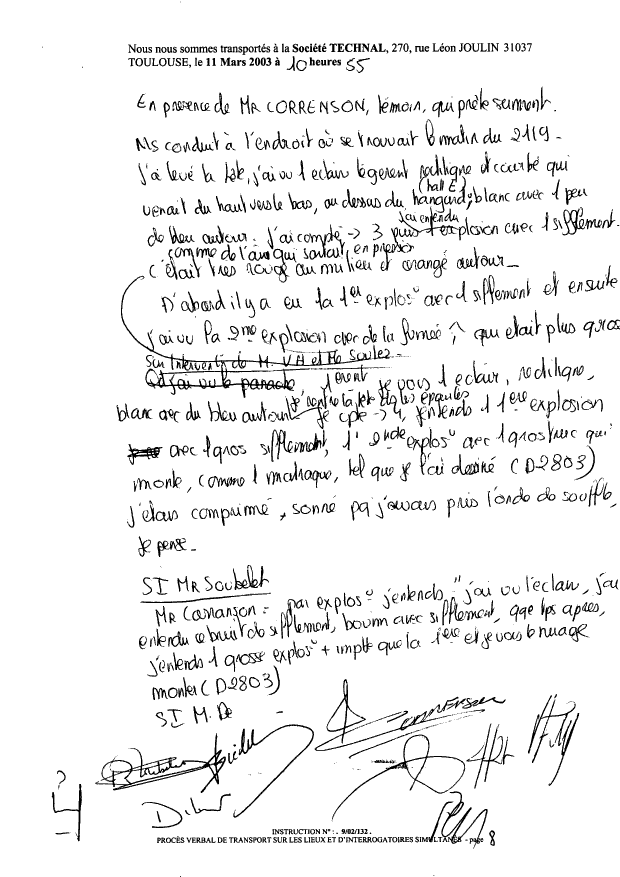 Nous nous sommes transportés à la Société TECHNAL, 270, rue Léon JOULIN 31037
TOULOUSE, le 11 Mars 2003 à 10 heures 55
En presence de Mr CORRENSON, témoin, qui prête serment.
Ns conduit à l'endroit où se trouvait le matin du 21/9 -
J'ai levé la tête, j'ai vu 1 eclair légerent rectiligne et courbé qui
(hall E)
venait du haut vers le bas, au dessus du hangard; blanc avec 1 peu
j'ai entendu
de bleu autour. J'ai compté -> 3 puis explosion avec 1 sifflement.
comme de l'air qui sortait en pression
C'était très rouge au milieu et orangé autour -
D'abord il y a eu la 1er explos° avec 1 sifflement et ensuite
j'ai vu la 2ème explosion avec de la fumée qui etait plus gros
Sur Intervent° de M. VA et Me Soulez -
Qd j'ai vu le panache, 1erent je vois 1 eclair, rectiligne,
je rentre la tête ds les épaules
blanc avec du bleu autour je cpte -> 4, j'entends 1 1ère explosion
avec 1 gros sifflement, 1 2nde explos° avec 1 gros truc qui
monte, comme 1 matraque, tel que je l'ai dessiné (D2803)
J'étais comprimé, sonné pq j'avais pris l'onde de souffle,
je pense -
SI MR Soubelet
Mr Corranson = par explos° j'entends "j'ai vu l'éclair, j'ai
entendu ce bruit de sifflement, boum avec sifflement, qqe tps apres,
j'entends 1 grosse explos° + imptte que la 1ère et je vois 1 nuage
monter (D2803)
SI M. De
CORRENSON
INSTRUCTION N° : . 9/02/132 .
PROCÈS VERBAL DE TRANSPORT SUR LES LIEUX ET D'INTERROGATOIRES SIMULTANÉS - page 8